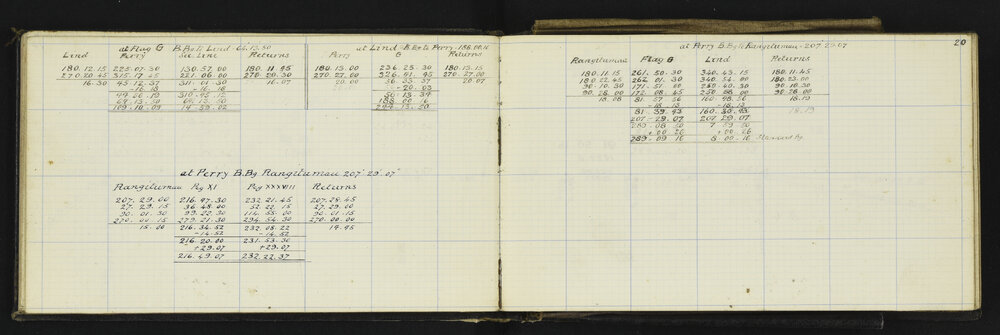 at Flag G B.Bg to Lind
Lind Perry Sec Line Returns
180.12.15 225.07.30 130.57.00 180.11.45
270.20.45 315.17.45 221.06.00 270.20.30
16.30 45.12.37 311.01.30 16.07
-16.18 -16.18
310.45.12
69.13.50 69.13.50
at Lind B.Bg to Perry
Perry G Returns
180.13.00 236.23.30 180.13.15
270.27.00 270.27.00
20.00 20.07
-20.03
188.00.16
at Perry B.Bg Rangitumau 207°.29'.07"
Rangitumau Peg XI Peg XXXVIII Returns
207.29.00 216.47.30 232.21.45 207.28.45
27.29.15 36.48.00 52.22.15 27.29.00
90.01.30 99.22.30 114.55.00 90.01.15
270.00.15 279.21.30 294.54.30 270.00.00
15.00 216.34.52 232.08.22 14.45
-14.52 -14.52
216.20.00 231.53.30
+29.07 +29.07
216.49.07 232.22.37
20
at Perry B.Bg to Rangitumau 207°29'.07
Rangitumau Flag G Lind Returns
180.11.15 261.50.30 340.43.15 180.11.45
180.22.45 262.01.30 340.54.00 180.23.00
90.10.30 171.51.00 250.40.30 90.10.30
90.28.00 172.08.45 90.28.00
18.08 81.57.56 18.19
-18.13 -18.13
81.39.43 160.30.43
207.29.07 207.29.07
289.08.50 7.59.50
+00.26 +00.26
289.09.16 8.00.16 Standard Bg